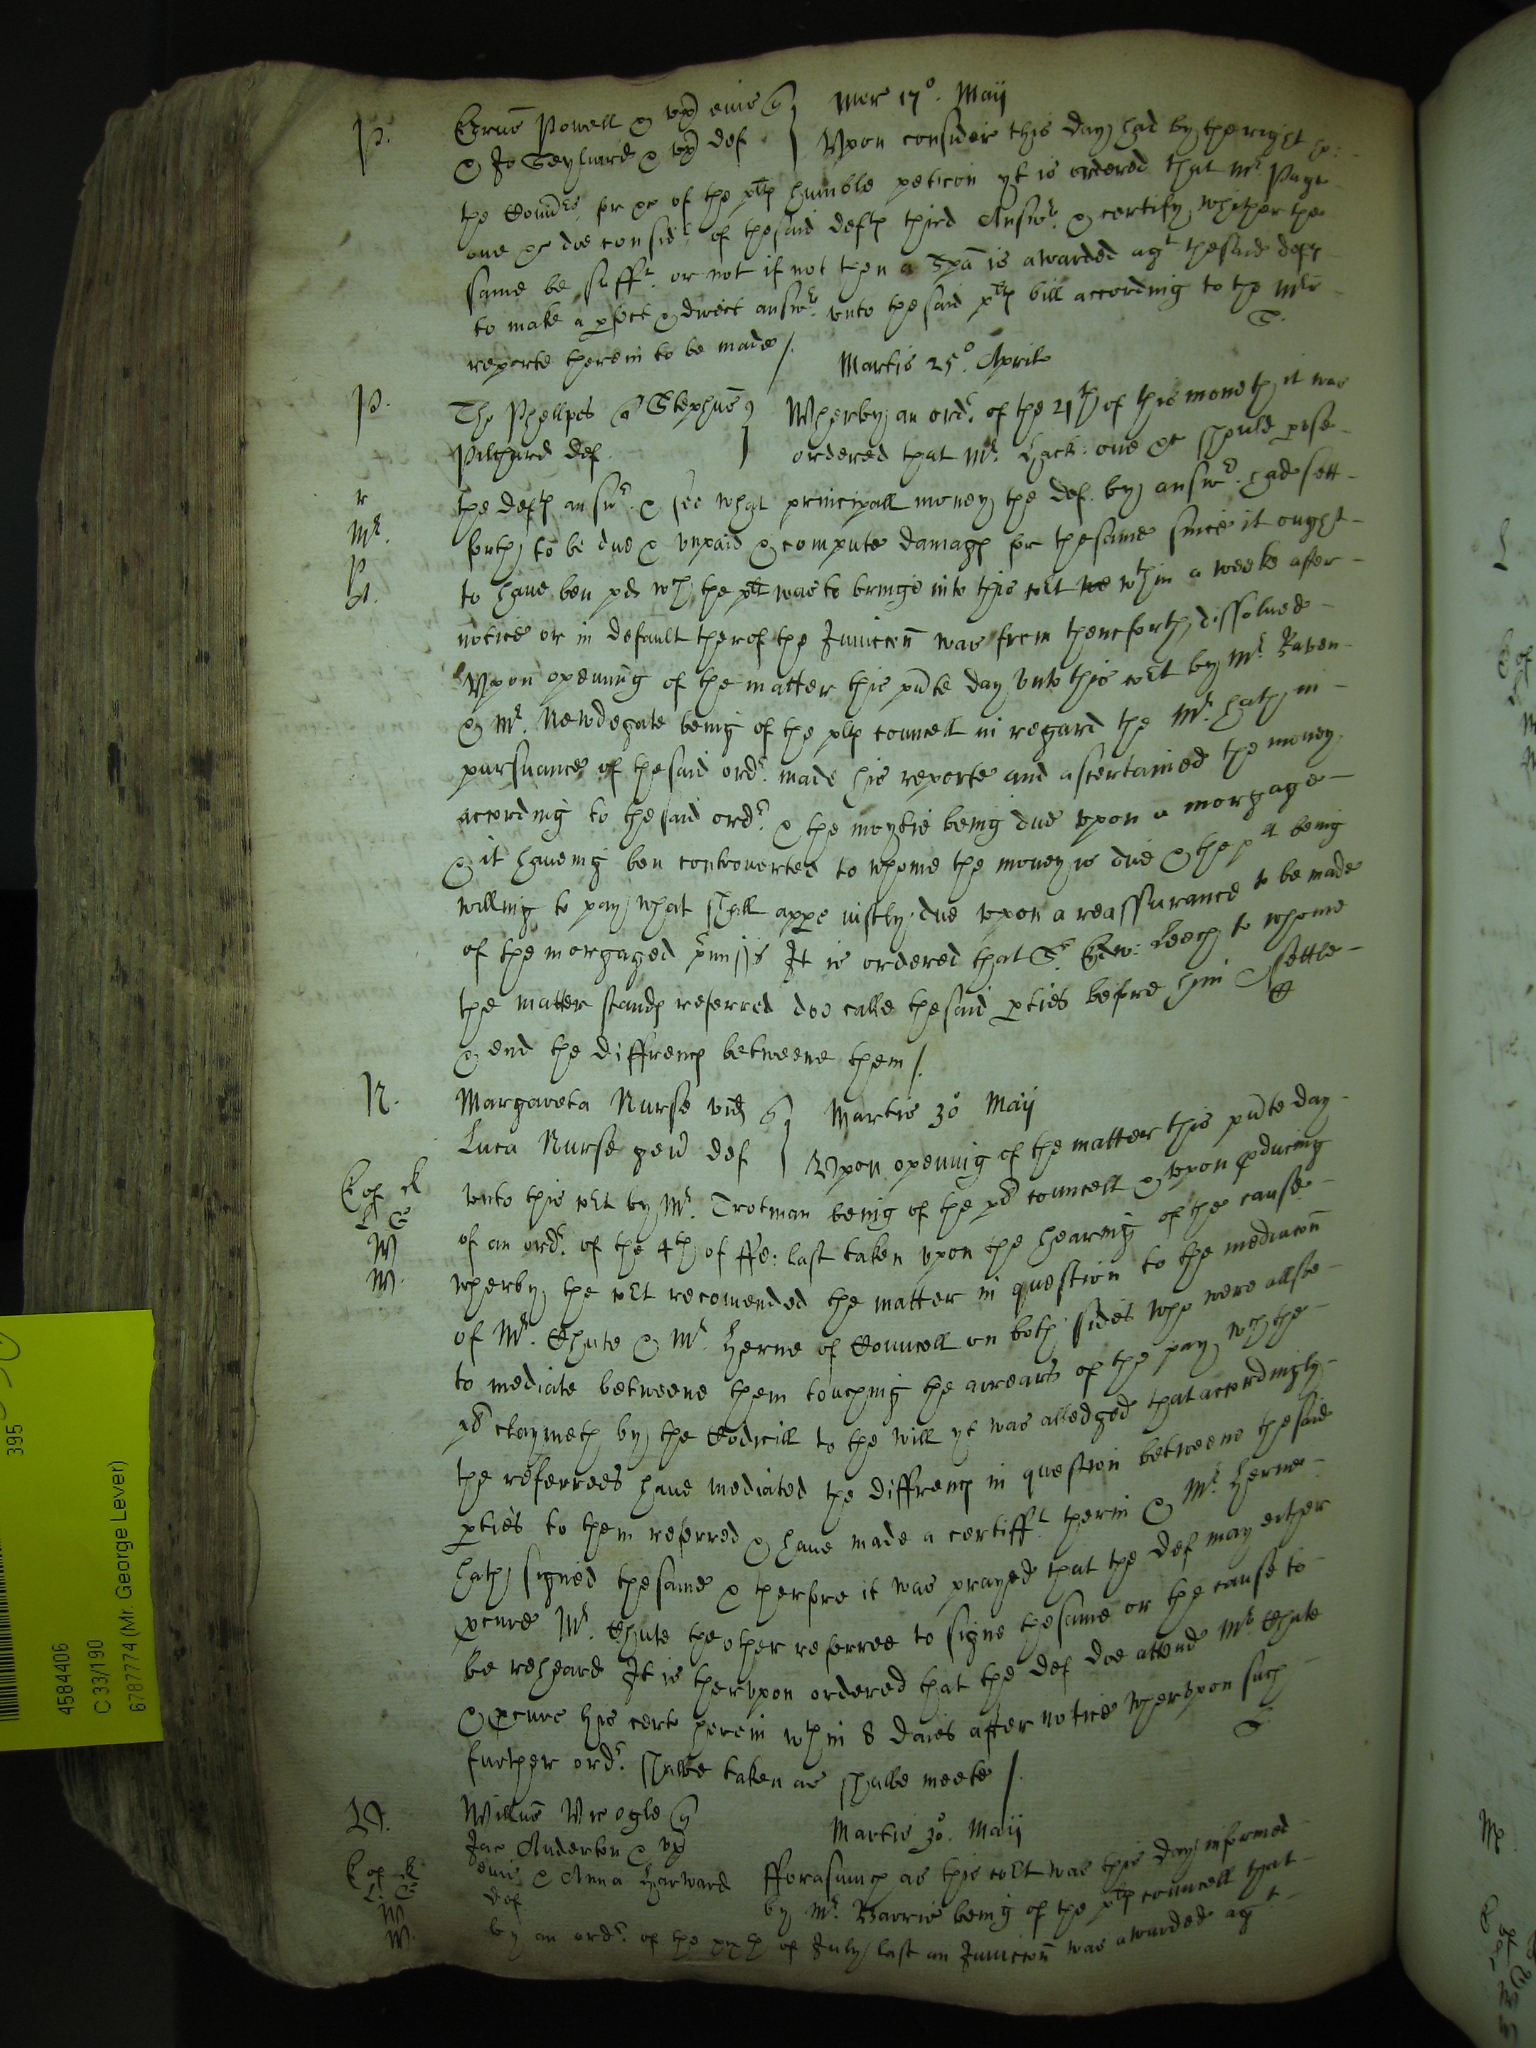 P. Powell & vx eius q Mer 17o. Maij
& Jo & vx def Vpon consider this day had by the right ho:
the for &c of the plts humble peticon yt is ordered that Mr. Page
one &c doe considr of thesaid defts third Answr. & certify whither the
same be sufft. or not if not then a Spa is awarded agt thesaid defts
to make a pfect & direct answr. vnto the said plts bill according to the Mrs
reporte therein to be made /.
S.
Martis 25o. Aprilis
P. Tho Phellpes q Stephus Wherby an ordr. of the 21th of this moneth it was
Pilchard def. ordered that Mr. one &c should pvse
r the defts answr. & see what principall money the def. by answr. had sett
Mr. forth to be due & vnpaid & compute damags for thesame since it ought
P to haue ben pd wch the plt was to bringe into this cort wthin a weeke after
notice or in default therof the Iniunccon was from thenceforth dissolued
Vpon opening of the matter this pnte day vnto this cort by Mr.
& Mr. Newdegate being of the plts councell in regard the Mr. hath in
pursuance of thesaid ordr. made his reporte and ascertained the money
according to thesaid ordr. & the moytie being due vpon a morgage
& it haueing ben controverted to whome the money is due & the plt being
willing to pay what shall appe iustly due vpon a reassurance to be made
of the morgaged pmisss It is ordered that Sr. Edw: Leech to whome
the matter stands referred doe calle thesaid pties before him & settle
& end the diffrencs betweene them /.
N. Margareta Nurse vid q Martis 30o Maij
Luca Nurse gen def Vpon opening of the matter this pnte day
vnto this cort by Mr. Trotman being of the plts councell & vpon pducing
of an ordr. of the 4th of ffe: last taken vpon the hearing of the cause
wherby the cort recomended the matter in question to the mediacon
of Mr. Chute & Mr. Herne of Councell on both sides who were allsoe
to mediate betweene them touching the arrears of the pay wch the
plt claymeth by the Codicill to the will yt was alledged that accordingly
the referrees haue mediated the diffrencs in question betweene thesaid
pties to them referred & haue made a certifft. therin & Mr. Herne
hath signed thesame & therfore it was prayed that the def may either
pcure Mr. Chute theother referree to signe thesame or the cause to
be reheard It is thervpon ordered that the def doe attend Mr. Chute
& pcure his certe herein wthin 8 daies after notice whervpon such
further ordr. shalbe taken as shalbe meete /.
S.
Willus q Martis 30o. Maij
Jac Anderton & vx
eius & Anna Harward fforasmuch as this cort was this day informed
def by Mr. being of the plts councell that
by an ordr. of the of July last an Iniunccon was awarded agt
395
4584406
C 33/190
6787774 (Mr. George Lever)